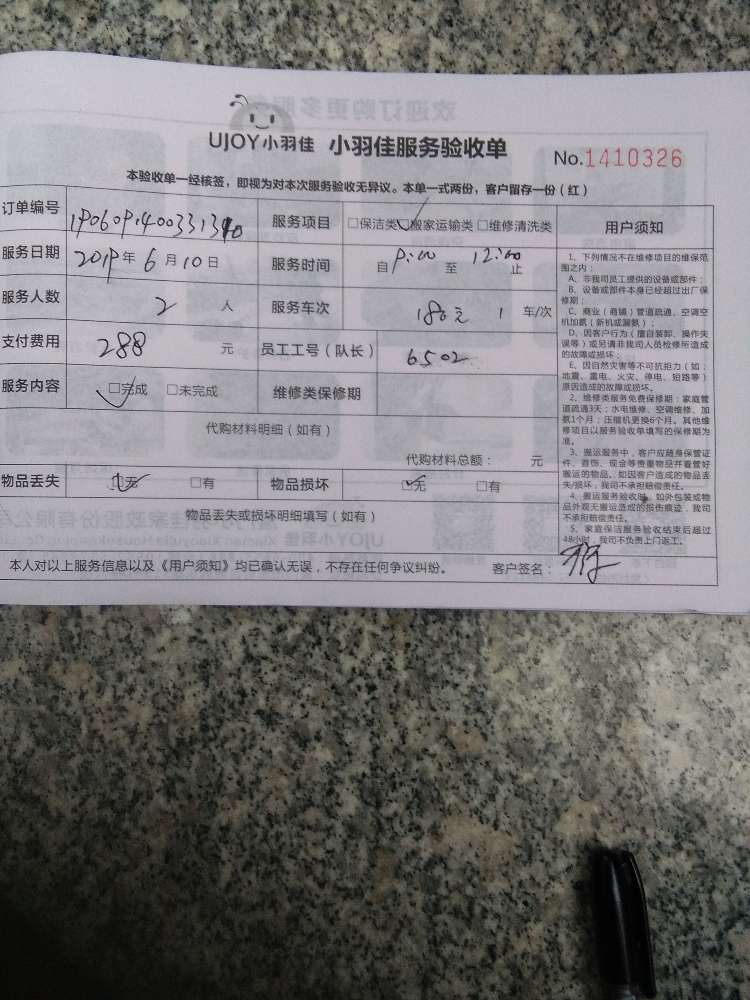 UJOY小羽佳 小羽佳服务验收单 No.1410326
本验收单一经核签，即视为对本次服务验收无异议。本单一式两份，客户留存一份（红）
订单编号 服务项目 □保洁类 □搬家运输类 □维修清洗类
服务日期 2019 年 6 月 10 日 服务时间 自 9:00 至 12:00 止
服务人数 2 人 服务车次 180元 1 车/次
支付费用 288 元 员工工号（队长） 6502
服务内容 □完成 □未完成 维修类保修期
代购材料明细（如有）
代购材料总额： 元
物品丢失 □无 □有 物品损坏 □无 □有
物品丢失或损坏明细填写（如有）
用户须知
1、下列情况不在维修项目的维保范
围之内：
A、非我司员工提供的设备或部件；
B、设备或部件本身已经超过出厂保
修期；
C、商业（商铺）管道疏通、空调空
机加氨（新机或漏氨）；
D、因客户行为（擅自装卸、操作失
误等）或另请非我司人员检修所造成
的故障或损坏；
E、因自然灾害等不可抗拒力（如：
地震、雷电、火灾、停电、短路等）
原因造成的故障或损坏。
2、维修类服务免费保修期：家庭管
道疏通3天；水电维修、空调维修、加
氨1个月；压缩机更换6个月。其他维
修项目以服务验收单填写的保修期为
准。
3、搬运服务中，客户应随身保管证
件、首饰、现金等贵重物品并看管好
搬运的物品。如因客户造成的物品丢
失/损坏，我司不承担赔偿责任。
4、搬运服务验收时，如外包装或物
品外观无搬运造成的损伤痕迹，我司
不承担赔偿责任。
5、家庭保洁服务验收结束后超过
48小时，我司不负责上门返工。
本人对以上服务信息以及《用户须知》均已确认无误，不存在任何争议纠纷。 客户签名：